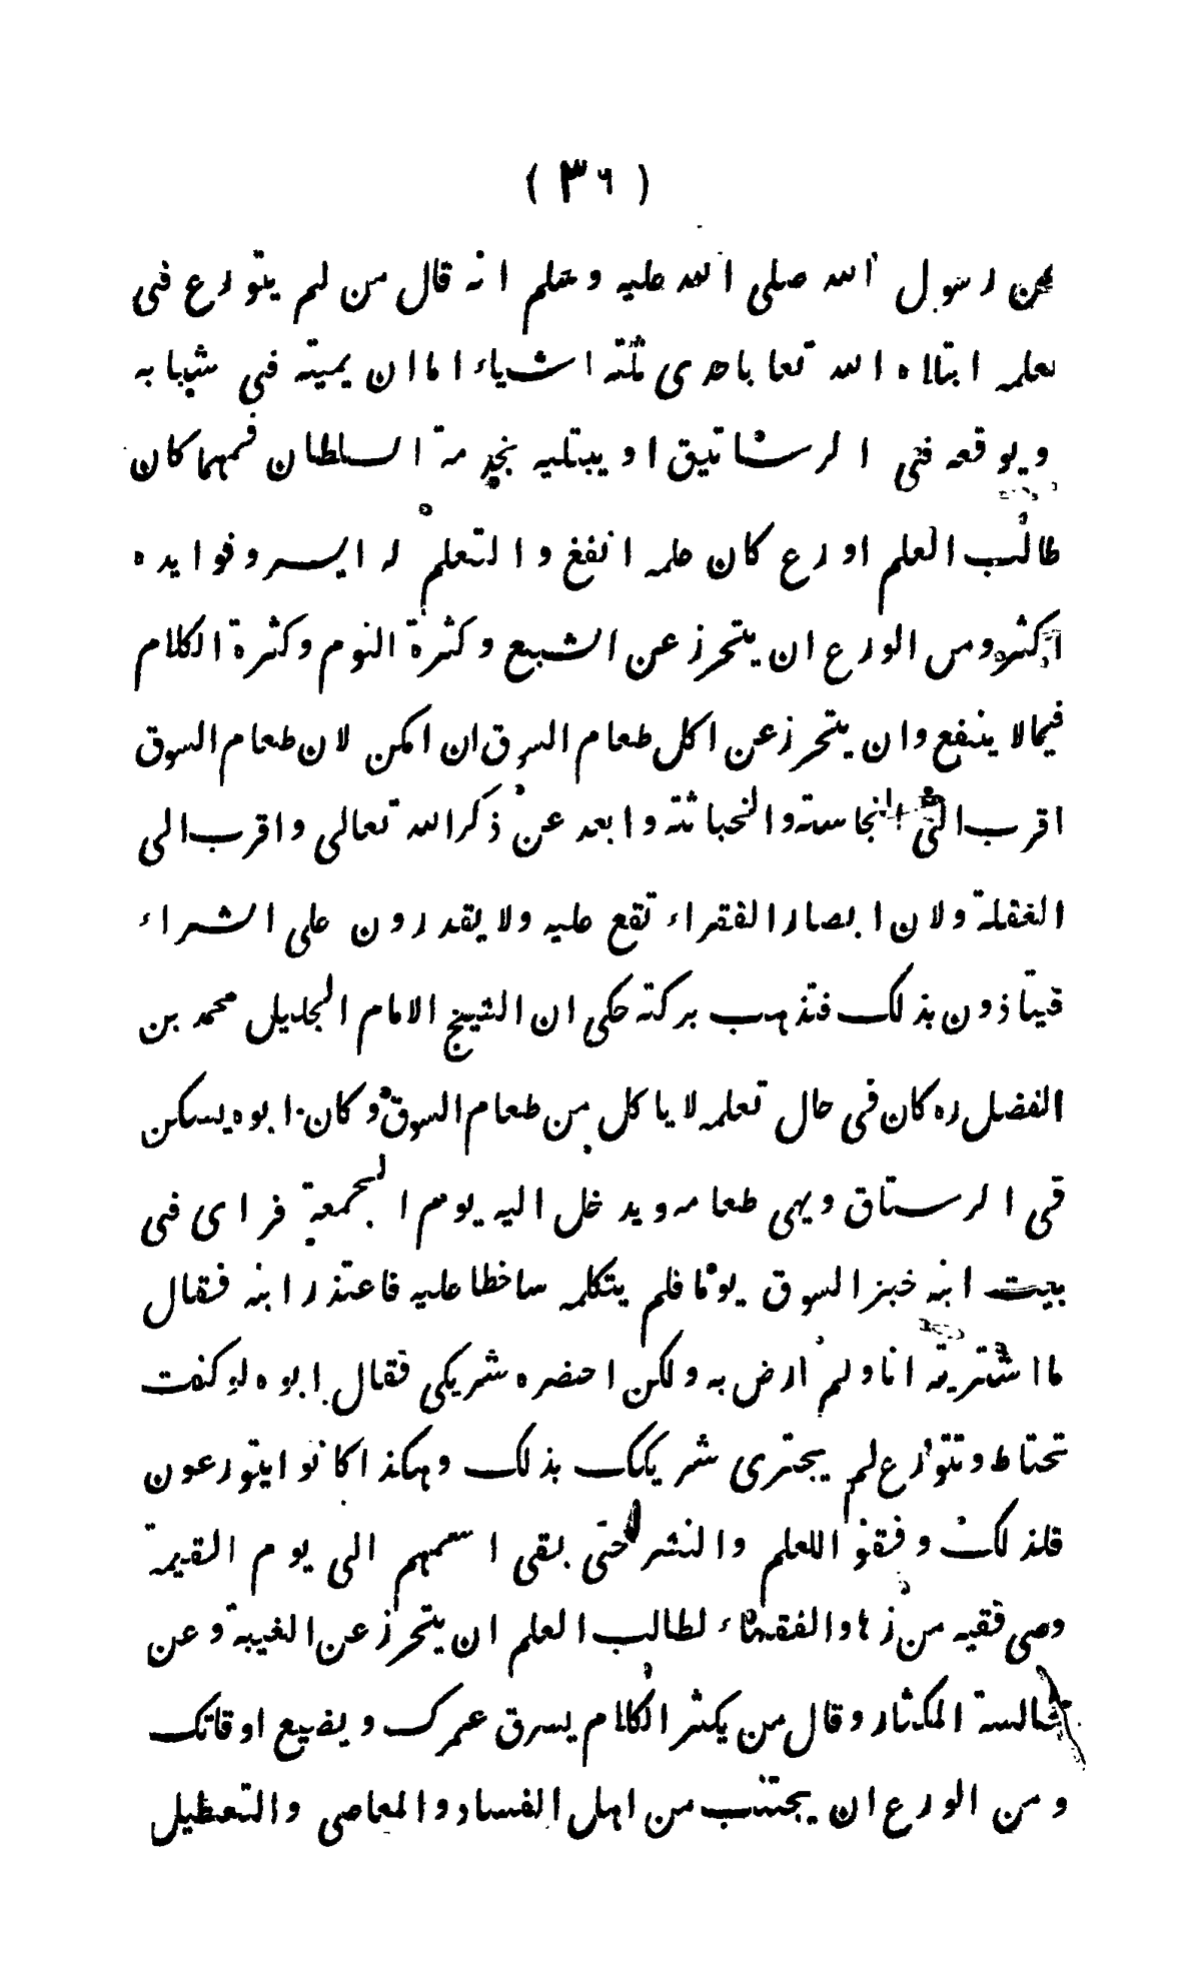 ( ٣٦ )
عن رسول الله صلى الله عليه وسلم انه قال من لم يتورع فى
تعلمه ابتلاه الله تعا باحدى ثلثه اشياء اما ان يميته فى شبابه
ويوقعه فى الرساتيق او يبتليه بخدمة السلطان فمهما كان
طالب العلم اورع كان علمه انفع والتعلم له ايسر وفوايده
اكثر ومن الورع ان يتحرز عن الشبع وكثرة النوم وكثرة الكلام
فيما لا ينفع وان يتحرز عن اكل طعام السوق ان امكن لان طعام السوق
اقرب الى النجاسته والخباثته وابعد عن ذكر الله تعالى واقرب الى
الغفلة ولان ابصار الفقراء تقع عليه ولا يقدرون على الشراء
فيتاذون بذلك فتذهب بركته حكى ان الشيخ الامام الجليل محمد بن
الفضل ره كان فى حال تعلمه لا ياكل من طعام السوق وكان ابوه يسكن
فى الرستاق ويهى طعامه ويدخل اليه يوم الجمعة فراى فى
بيت ابنه خبز السوق يوما فلم يتكلمه ساخطا عليه فاعتذر ابنه فقال
ما اشتريته انا ولم ارض به ولكن احضره شريكى فقال ابوه لو كنت
تحتاط وتتورع لم يجترى شريكك بذلك وهكذا كانوا يتورعون
فلذلك وفقوا للعلم والنشر حتى بقى اسمهم الى يوم القيمة
وصى فقيه من زهاد الفقهاء لطالب العلم ان يتحرز عن الغيبة وعن
مجالسة المكثار وقال من يكثر الكلام يسرق عمرك ويضيع اوقاتك
ومن الورع ان يجتنب من اهل الفساد والمعاصى والتعطيل